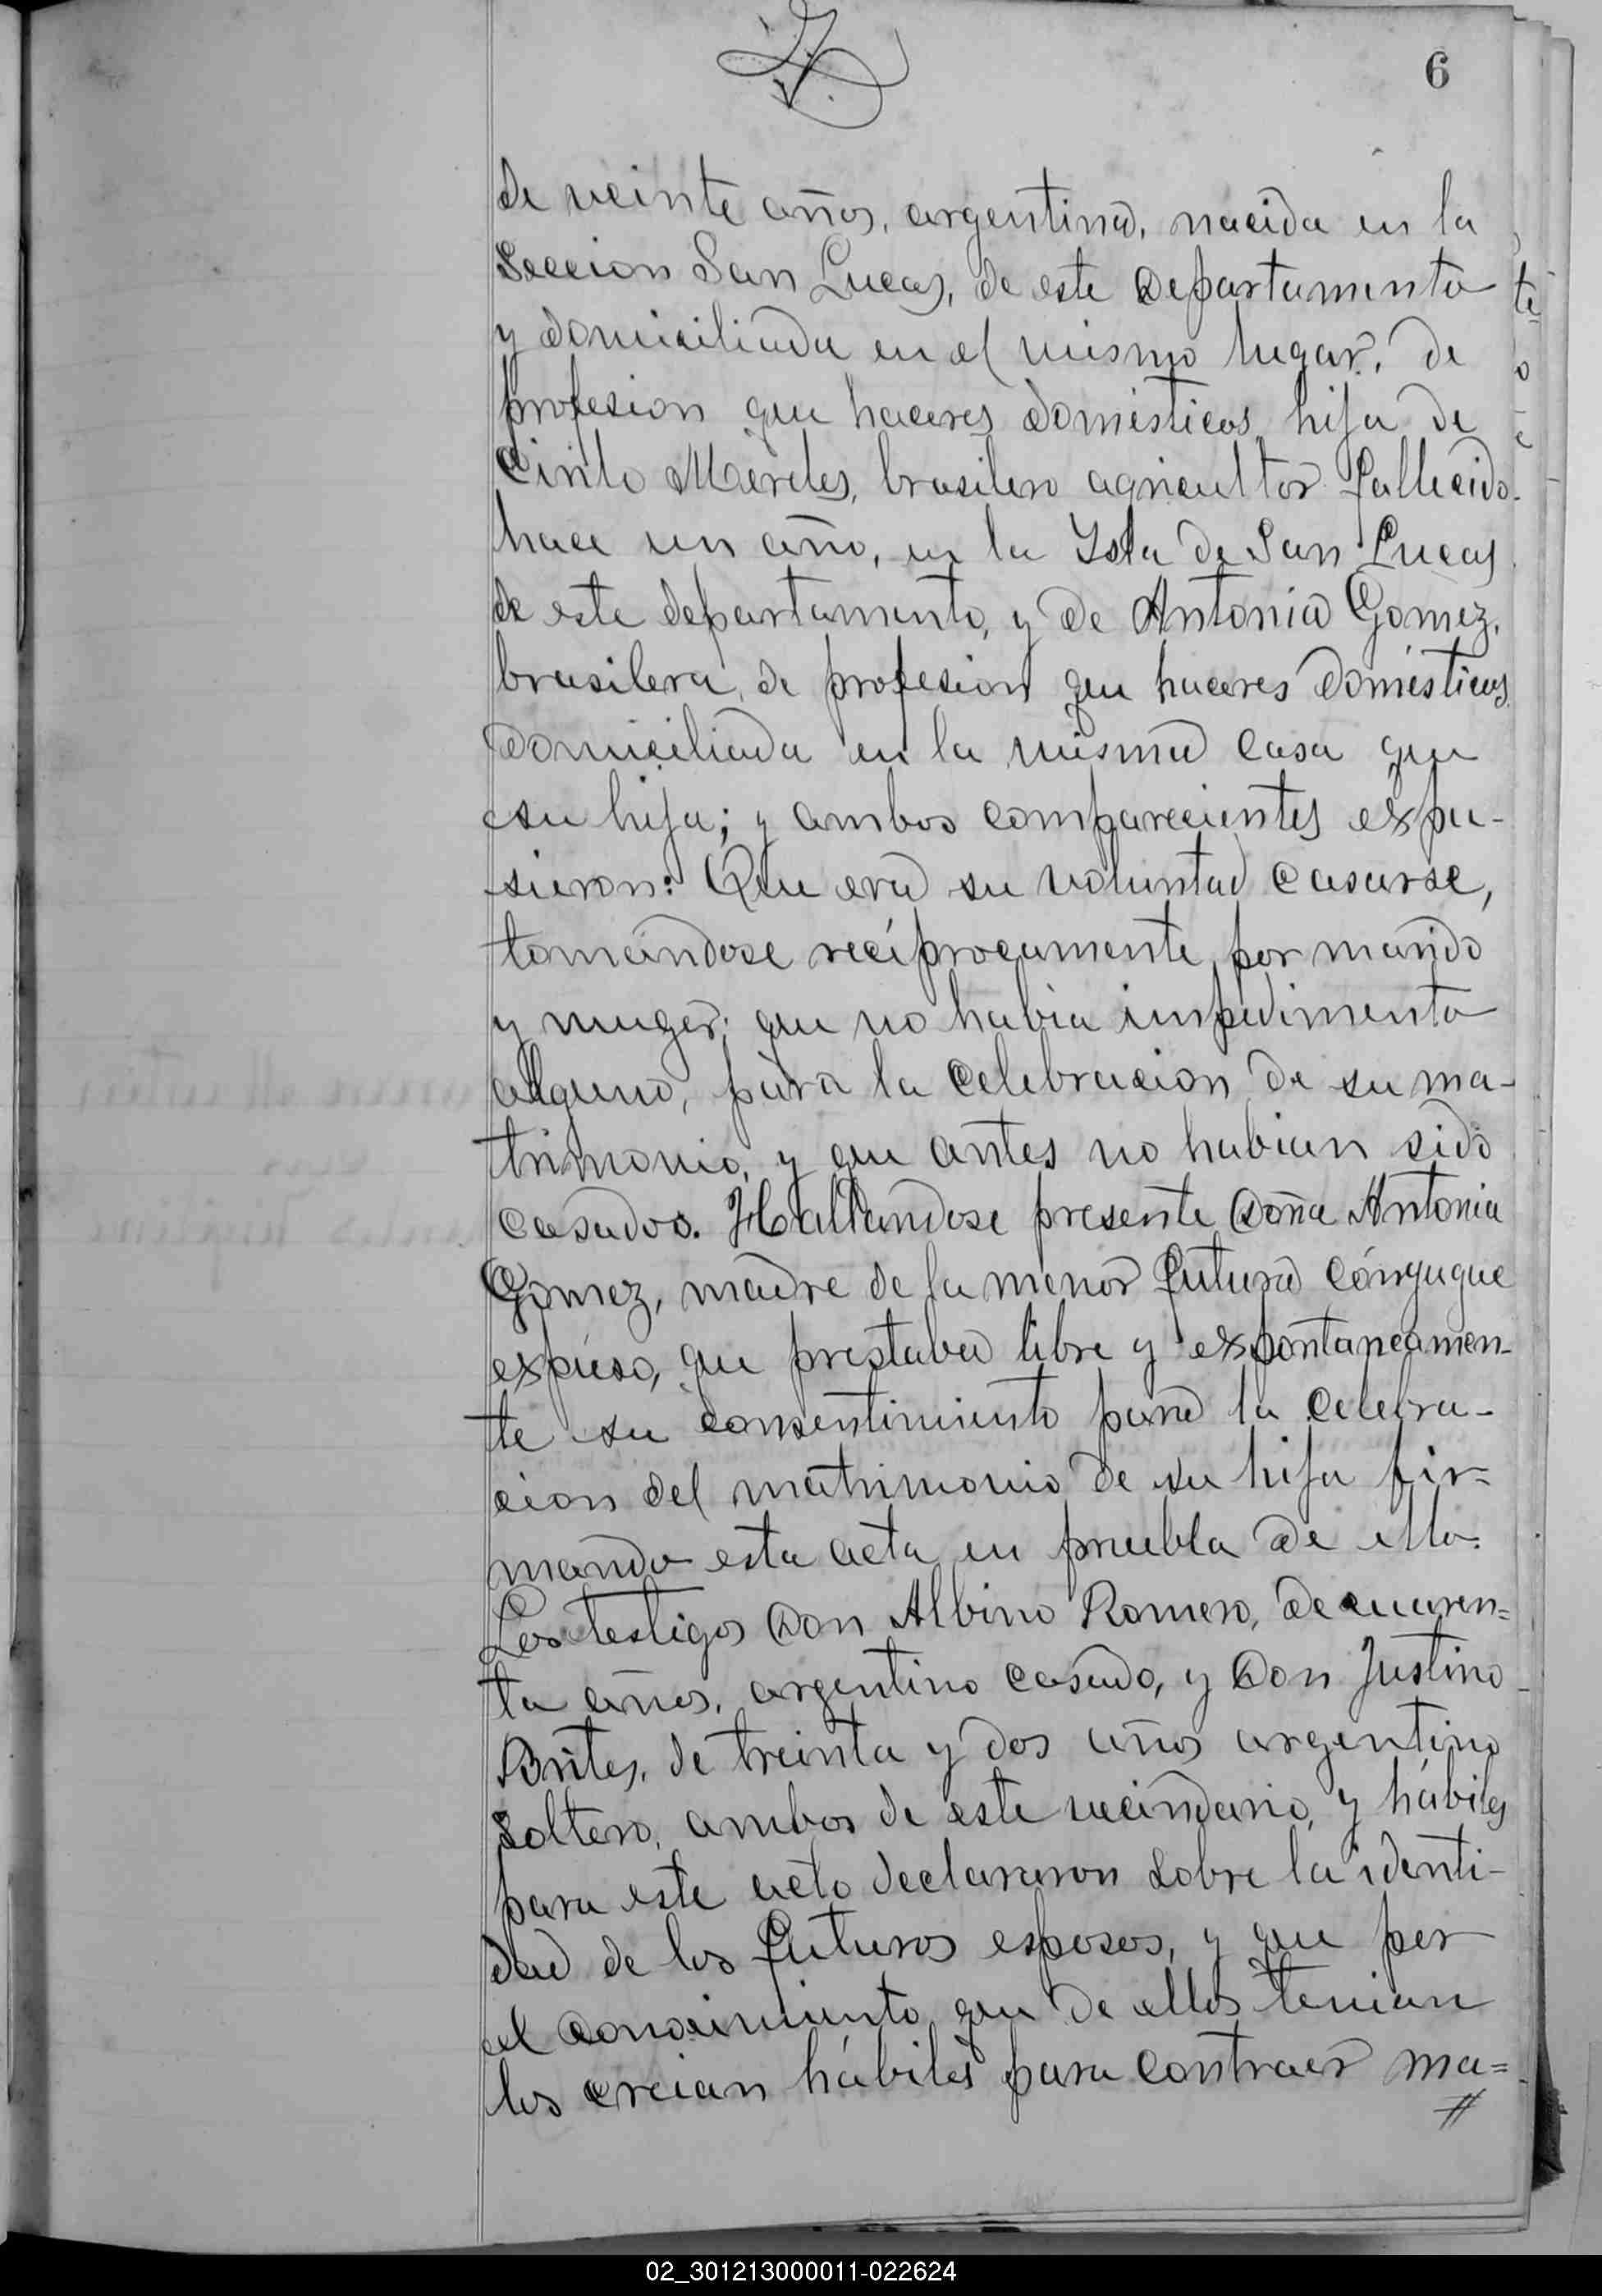 6
de veinte años, argentina, nacida en la
Seccion San Lucas, de este Departamento
y domiciliada en el mismo lugar, de
profesion que haceres domésticos, hija de
Cinto Mereles, brasilero agricultor fallecido
hace un año, en la Ysla de San Lucas
de este departamento, y de Antonia Gomez,
brasilera, de profesion que haceres domésticos
domiciliada en la misma casa que
su hija; y ambos comparecientes expu-
sieron: Que era su voluntad casarse,
tomándose recíprocamente por marido
y muger; que no habia impedimento
alguno, para la celebracion de su ma-
trimonio, y que antes no habian sido
casados. Hallandose presente Doña Antonia
Gomez, madre de la menor futura cónyugue
expúso, que prestaba libre y expontaneamen-
te su consentimiento para la celebra-
cion del matrimonio de su hija fir=
mando esta acta en prueba de ello.
Los testigos Don Albino Romero, de cuaren=
ta años, argentino casado, y Don Justino
Brites, de treinta y dos años argentino
soltero, ambos de este vecindario, y hábiles
para este acto declararon sobre la identi-
dad de los futuros esposos, y que por
el conocimiento que de ellos tenian
los creian hábiles para contraer ma=
//
02_301213000011-022624